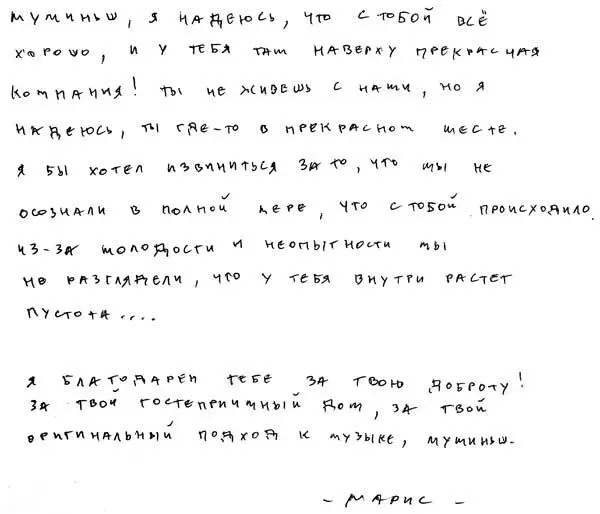 Муминьш, я надеюсь, что с тобой всё
хорошо, и у тебя там наверху прекрасная
компания! Ты не живешь с нами, но я
надеюсь, ты где-то в прекрасном месте.
Я бы хотел извиниться за то, что мы не
осознали в полной мере, что с тобой происходило.
Из-за молодости и неопытности мы
не разглядели, что у тебя внутри растет
пустота....
Я благодарен тебе за твою доброту!
За твой гостеприимный дом, за твой
оригинальный подход к музыке, Муминьш.
- Марис -